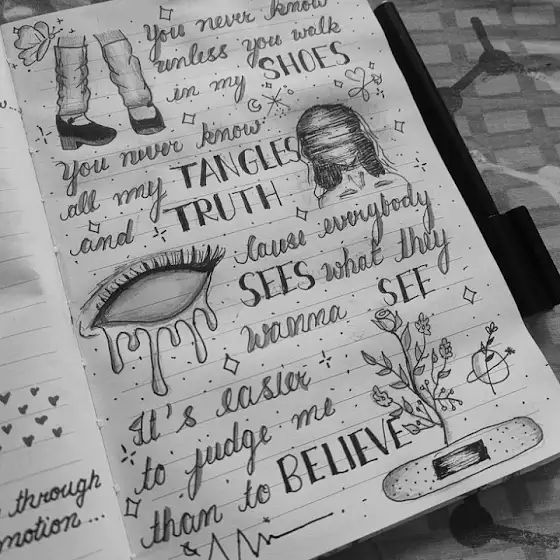 You never know
unless you walk
in my SHOES
You never know
all my TANGLES
and TRUTH
'cause everybody
SEES what they
wanna SEE
It's easier
to judge me
than to BELIEVE
through
motion...